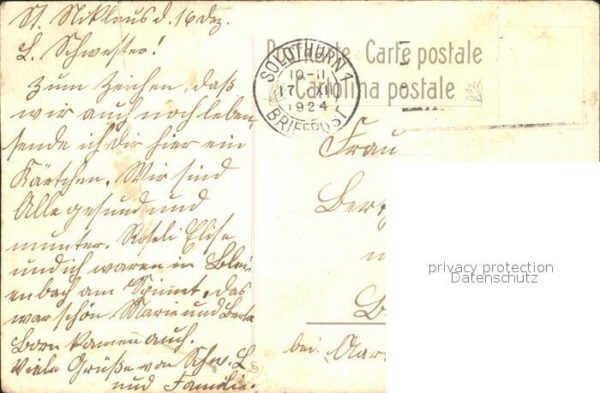 St. Niklaus d. 16 Dez.
L. Schwester!
Zum Zeichen, daß
wir auch noch leben,
sende ich dir hier ein
Kärtchen. Wir sind
Alle gesund und
munter. Roseli Elise
und ich waren in Blei-
enbach am Spinnet, das
war schön Marie und Berta
Born kamen auch.
Viele Grüße von Schw. L
und Familie.
Carte postale
Cartolina postale
SOLOTHURN 1
10-11
17 XII
1924
BRIEFPOST
Frau
bei Aar
privacy protection
Datenschutz